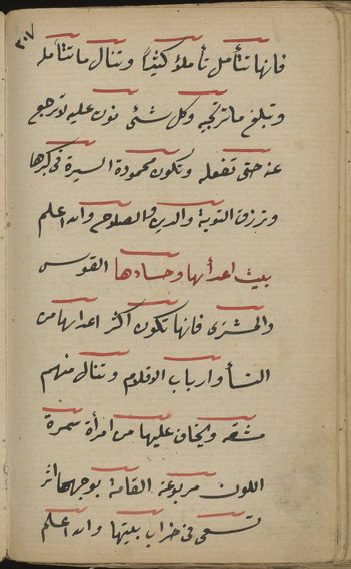 ٣٠٧
فانها تتأمل تأملاً كثيراً وتنال ما تتأمله
وتبلغ ما ترتجيه وكل شئ نون عليه لا ترجع
عنه حتى تفعله وتكون محمودة السيرة في كبرها
وترزق التوبة والدين والصلاح والله اعلم
بيت اعدائها وحسادها القوس
والمشترى فانها تكون اكثر اعدائها من
النسأ وارباب الاقلام وتنال منهم
مشقه ويخاف عليها من امرأة سمرة
اللون مربوعة القامة بوجهها اثر
تسعى في خراب بيتها والله اعلم